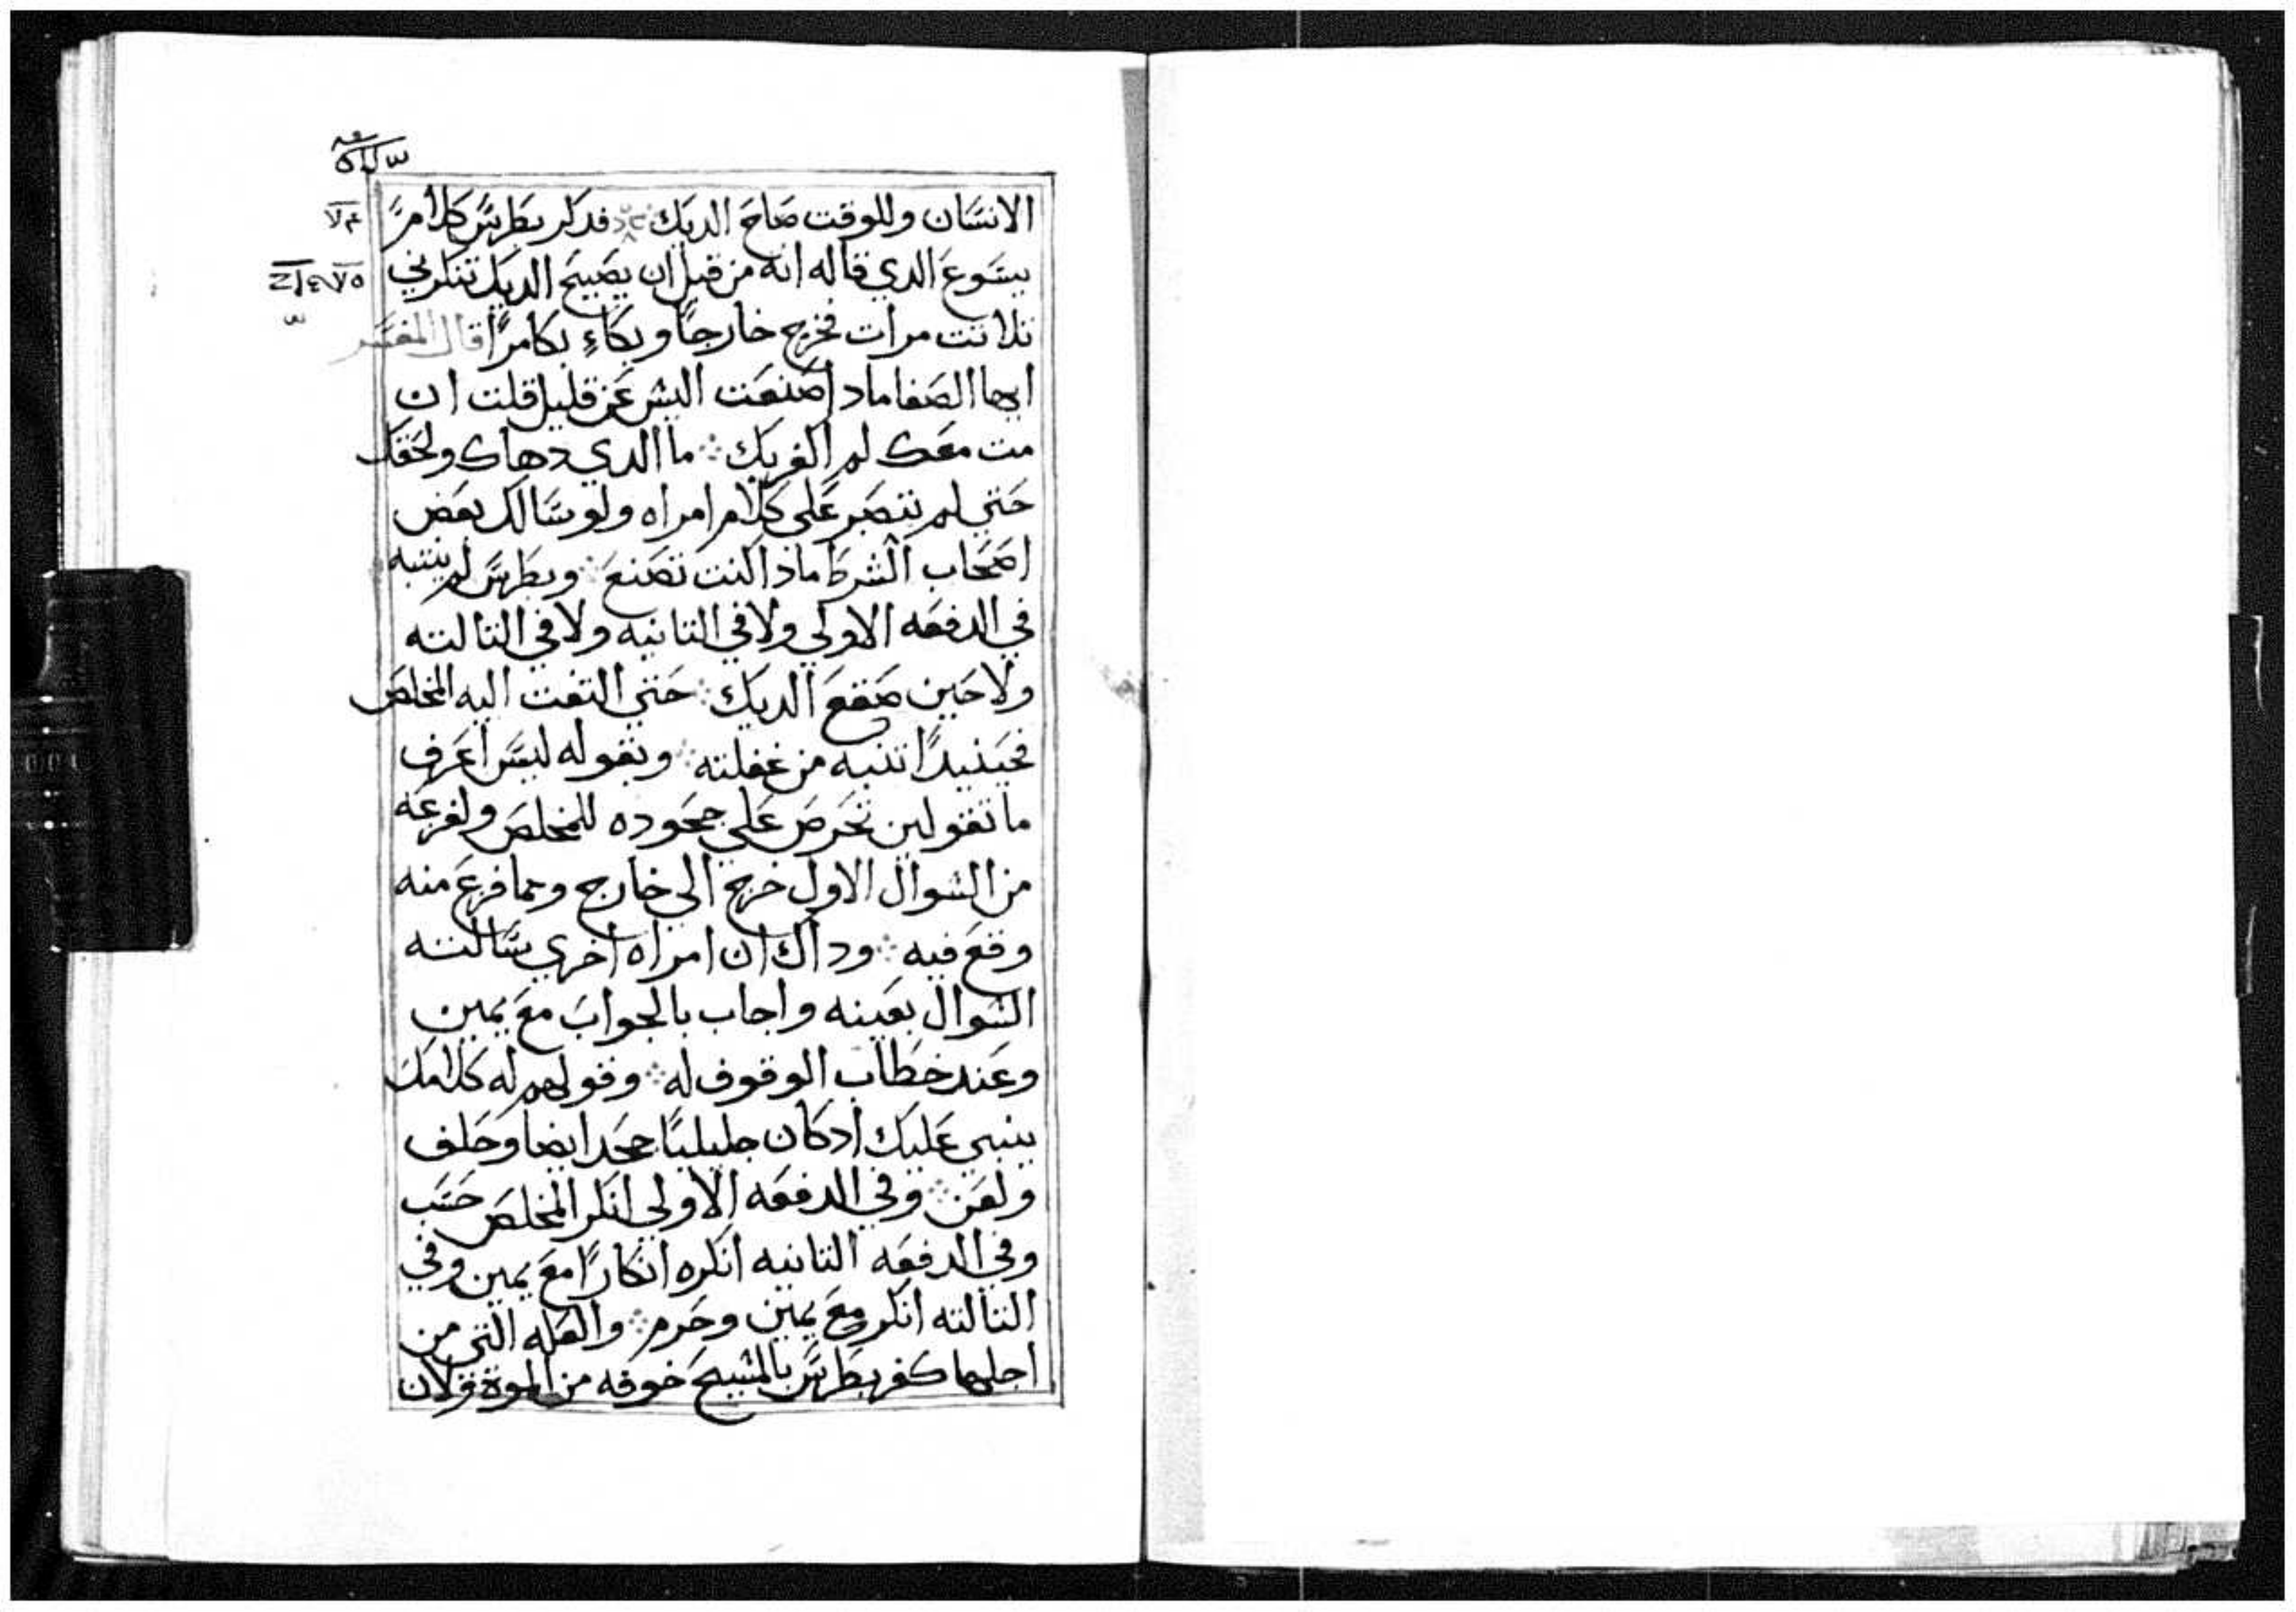 الانسان وللوقت صاح الديك فدكر بطرس كلام
يسوع الدي قاله انه من قبل ان يصيح الديك تنكرني
تلاتت مرات فخرج خارجًا وبكاءٍ بكا مرًا قال المفسر
ايها الصفا مادا صنعت اليس عن قليل قلت ان
مت معك لم اكفر بك ما الدي دهاك ولحقك
حتي لم تتصبر علي كلام امراه ولو سالك بعض
اصحاب الشرط ماذا كنت تصنع وبطرس لم ينتبه
في الدفعه الاولي ولا في التانيه ولا في التالته
ولا حين صقع الديك حتي التفت اليه المخلص
فحينيدًا انتبه من غفلته وبقوله ليس اعرف
ما تقولين تحرص علي جحوده للمخلص ولفزعه
من السوال الاول خرج الي خارج ومما فزع منه
وقع فيه وداك ان امراه اخري سالته
السوال بعينه واجاب بالجواب مع يمين
وعند خطاب الوقوف له وقولهم له كلامك
ينبي عليك ادكان جليليًا جحد ايضا وحلف
ولعن وفي الدفعه الاولي انكر المخلص حسب
وفي الدفعه التانيه انكره انكارًا مع يمين وفي
التالته انكر مع يمين وحرم والعله التي من
اجلها كفر بطرس بالمسيح خوفه من الموت ولان